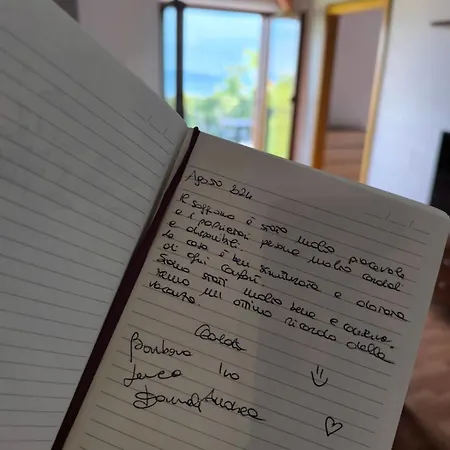 Agosto 2024
Il soggiorno è stato molto piacevole
e i proprietari persone molto cordiali
e disponibili.
la casa è ben strutturata e dotata
di ogni comfort.
Siamo stati molto bene e conserve-
remo un ottimo ricordo della
vacanza.
Barbara Ivo
Luca
Andrea